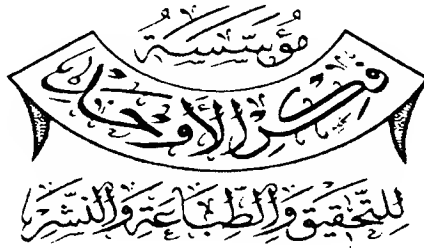 مُؤَسَّسَةُ
فِكْرِ الأَوْحَدِ
لِلتَّحْقِيقِ وَالطِّبَاعَةِ وَالنَّشْرِ